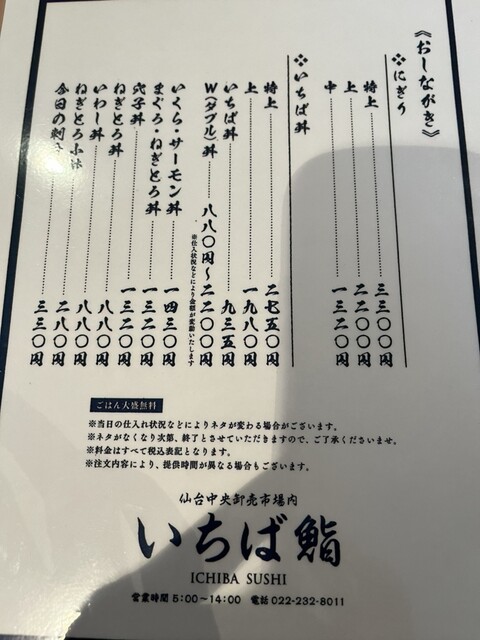 《おしながき》
❖にぎり
特上 三三〇〇円
上 二二〇〇円
中 一三二〇円
❖いちば丼
特上 二七五〇円
上 一九八〇円
いちば丼 九三五円
W(ダブル)丼 八八〇円～二二〇〇円
※仕入状況などにより金額が変動いたします
いくら・サーモン丼 一四三〇円
まぐろ・ねぎとろ丼 一三二〇円
穴子丼 一三二〇円
ねぎとろ丼 八八〇円
いわし丼 八八〇円
ねぎとろ小鉢 二八〇円
今日の刺 三三〇円
ごはん大盛無料
※当日の仕入れ状況などによりネタが変わる場合がございます。
※ネタがなくなり次第、終了とさせていただきますので、ご了承くださいませ。
※料金はすべて税込表記となります。
※注文内容により、提供時間が異なる場合もございます。
仙台中央卸売市場内
いちば鮨
ICHIBA SUSHI
営業時間 5:00～14:00 電話 022-232-8011